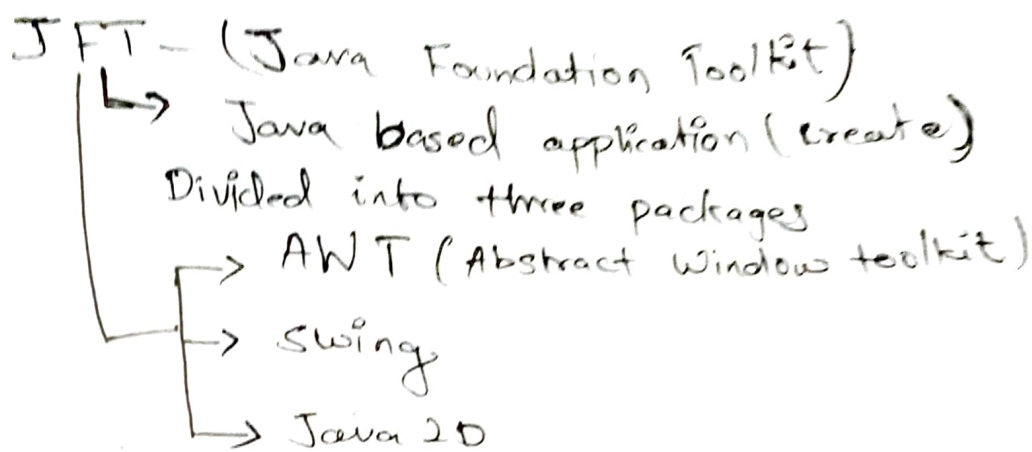 JFT - (Java Foundation Toolkit)
Java based application (create)
Divided into three packages
AWT (Abstract Window toolkit)
swing
Java 2D